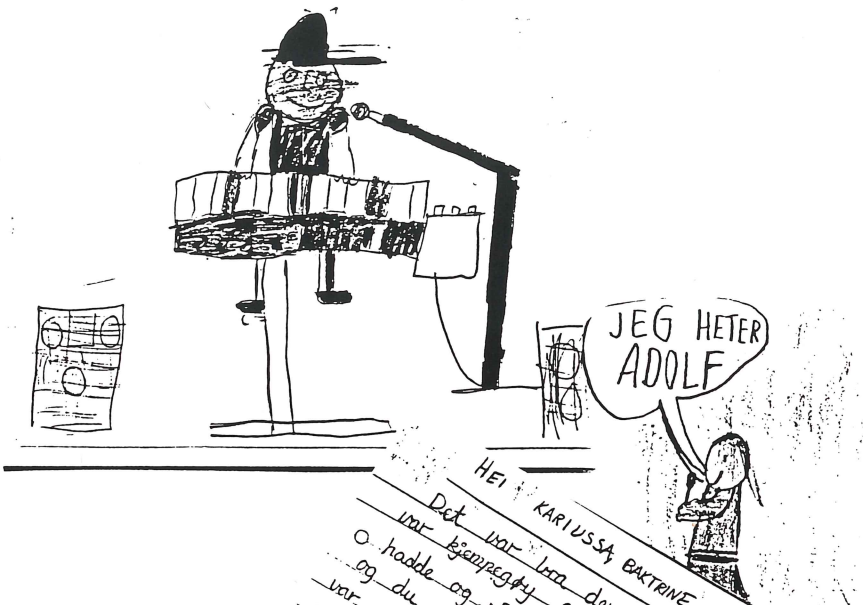 JEG HETER
ADOLF
HEI KARIUSSA, BAKTRINE
Det var bra
var kjempegøy
hadde og
og du
var